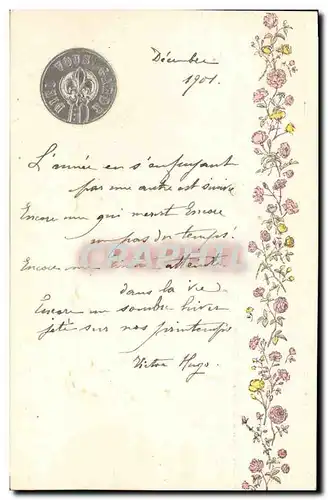 DIEU VOUS GARDE
Décembre
1901.
L'année en s'enfuyant
par une autre est suivie
Encore une qui meurt Encore
un pas du temps!
Encore une limite atteinte
dans la vie
Encore un sombre hiver
jeté sur nos printemps
Victor Hugo.